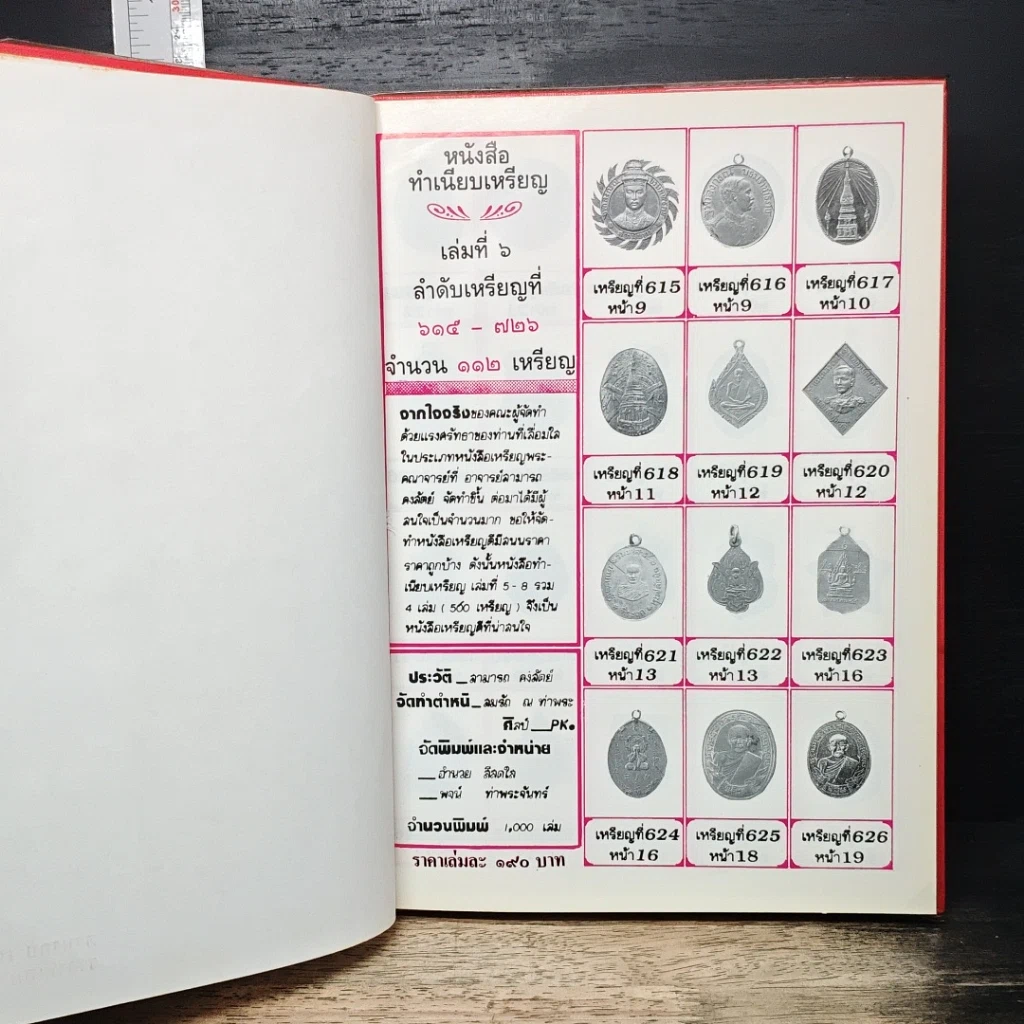 หนังสือ
ทำเนียบเหรียญ
เล่มที่ ๖
ลำดับเหรียญที่
๖๑๕ - ๗๒๖
จำนวน ๑๑๒ เหรียญ
จากใจจริงของคณะผู้จัดทำ
ด้วยแรงศรัทธาของท่านที่เลื่อมใส
ในประเภทหนังสือเหรียญพระ-
คณาจารย์ที่ อาจารย์สามารถ
คงสัตย์ จัดทำขึ้น ต่อมาได้มีผู้
สนใจเป็นจำนวนมาก ขอให้จัด-
ทำหนังสือเหรียญดีมีสนนราคา
ราคาถูกบ้าง ดังนั้นหนังสือทำ-
เนียบเหรียญ เล่มที่ 5-8 รวม
4 เล่ม (500 เหรียญ) จึงเป็น
หนังสือเหรียญดีที่น่าสนใจ
ประวัติ_สามารถ คงสัตย์
จัดทำตำหนิ_สมรัก ณ ท่าพระ
ศิลป์__PK๑
จัดพิมพ์และจำหน่าย
__อำนวย ลีลดใส
__พจน์ ท่าพระจันทร์
จำนวนพิมพ์ 1,000 เล่ม
ราคาเล่มละ ๑๙๐ บาท
เหรียญที่615
หน้า9
เหรียญที่616
หน้า9
เหรียญที่617
หน้า10
เหรียญที่618
หน้า11
เหรียญที่619
หน้า12
เหรียญที่620
หน้า12
เหรียญที่621
หน้า13
เหรียญที่622
หน้า13
เหรียญที่623
หน้า16
เหรียญที่624
หน้า16
เหรียญที่625
หน้า18
เหรียญที่626
หน้า19